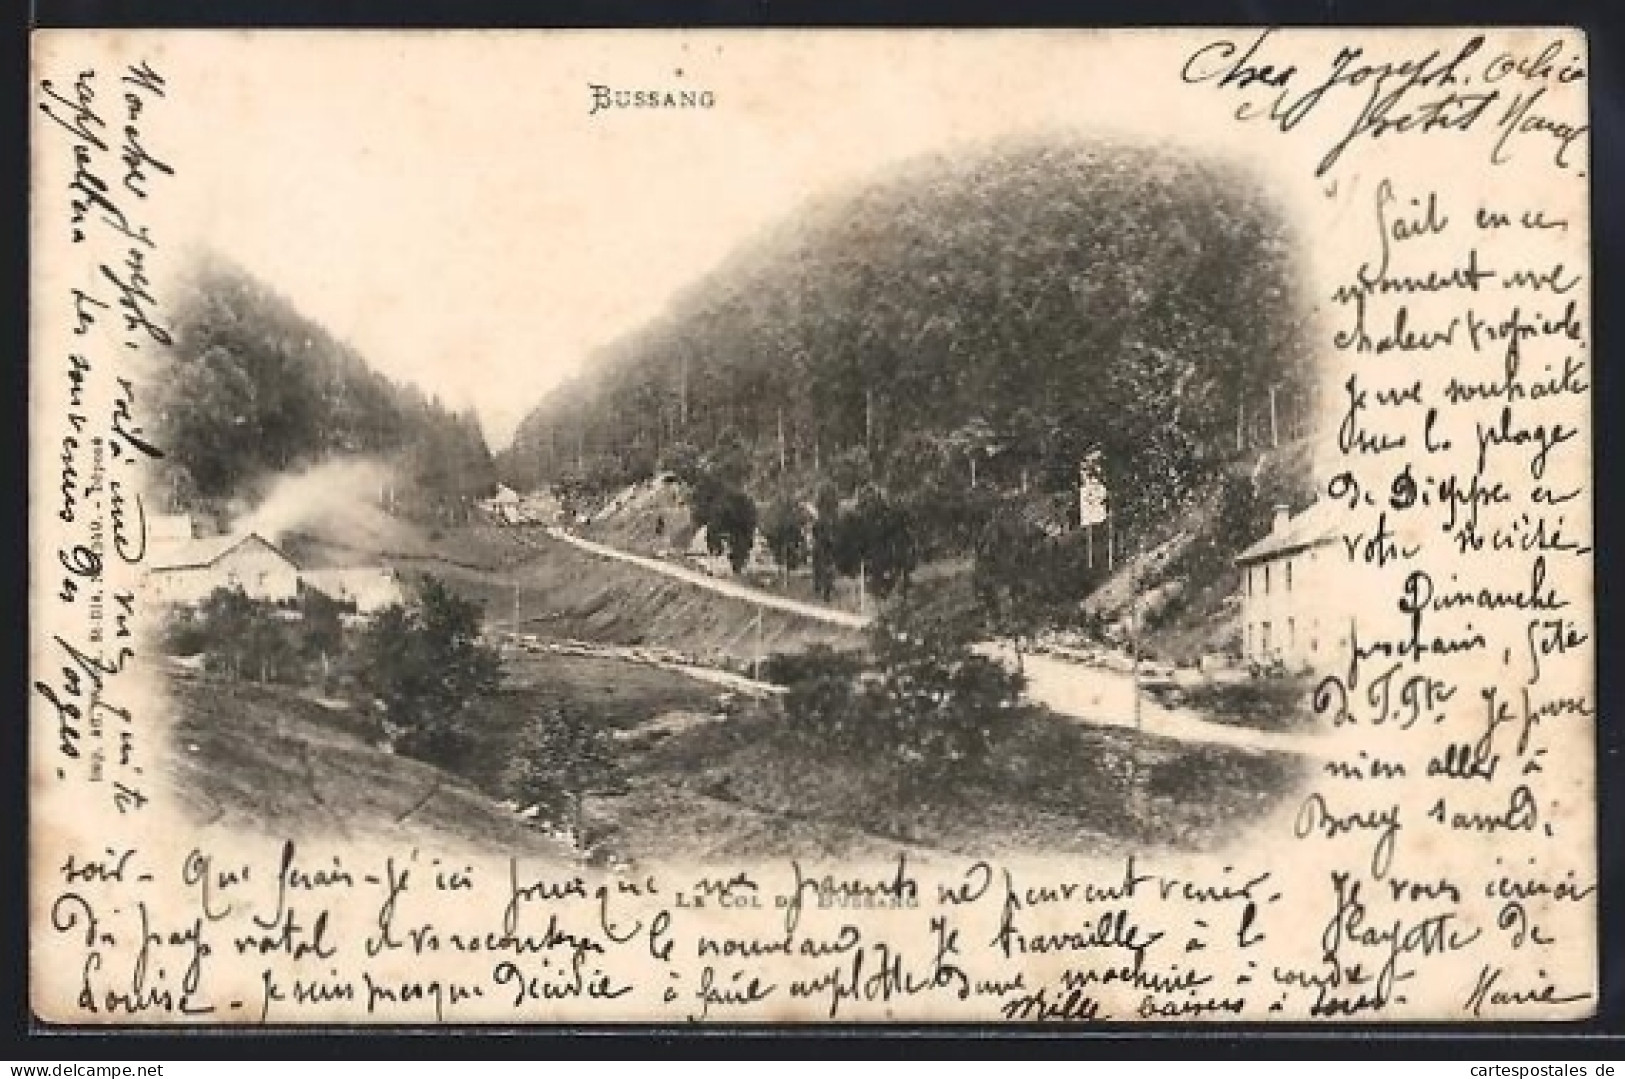 BUSSANG
Cher Joseph
petit
Fait en ce
moment une
chaleur
Je me souhaite
sur la plage
de Dieppe en
votre société.
Dimanche
prochain, fête
de Je pense
m'en aller à
Mon cher Joseph, voilà une vue qui te
rappellera les souvenirs des Vosges.
soir. Que ferais-je ici puisque mes parents ne peuvent venir.
LE COL DE BUSSANG
Je vous
du pays natal et vs raconterai le nouveau. Je travaille à la layette de
Louise. Je suis presque décidée à faire d'une machine à coudre
Mille baisers à tous. Marie
cartespostales de